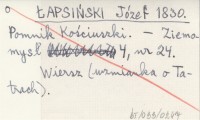 ŁAPSIŃSKI Józef 1830.
Pomnik Kościuszki. — Ziemo
mysł 4, nr 24.
Wiersz (wzmianka o Ta-
trach).